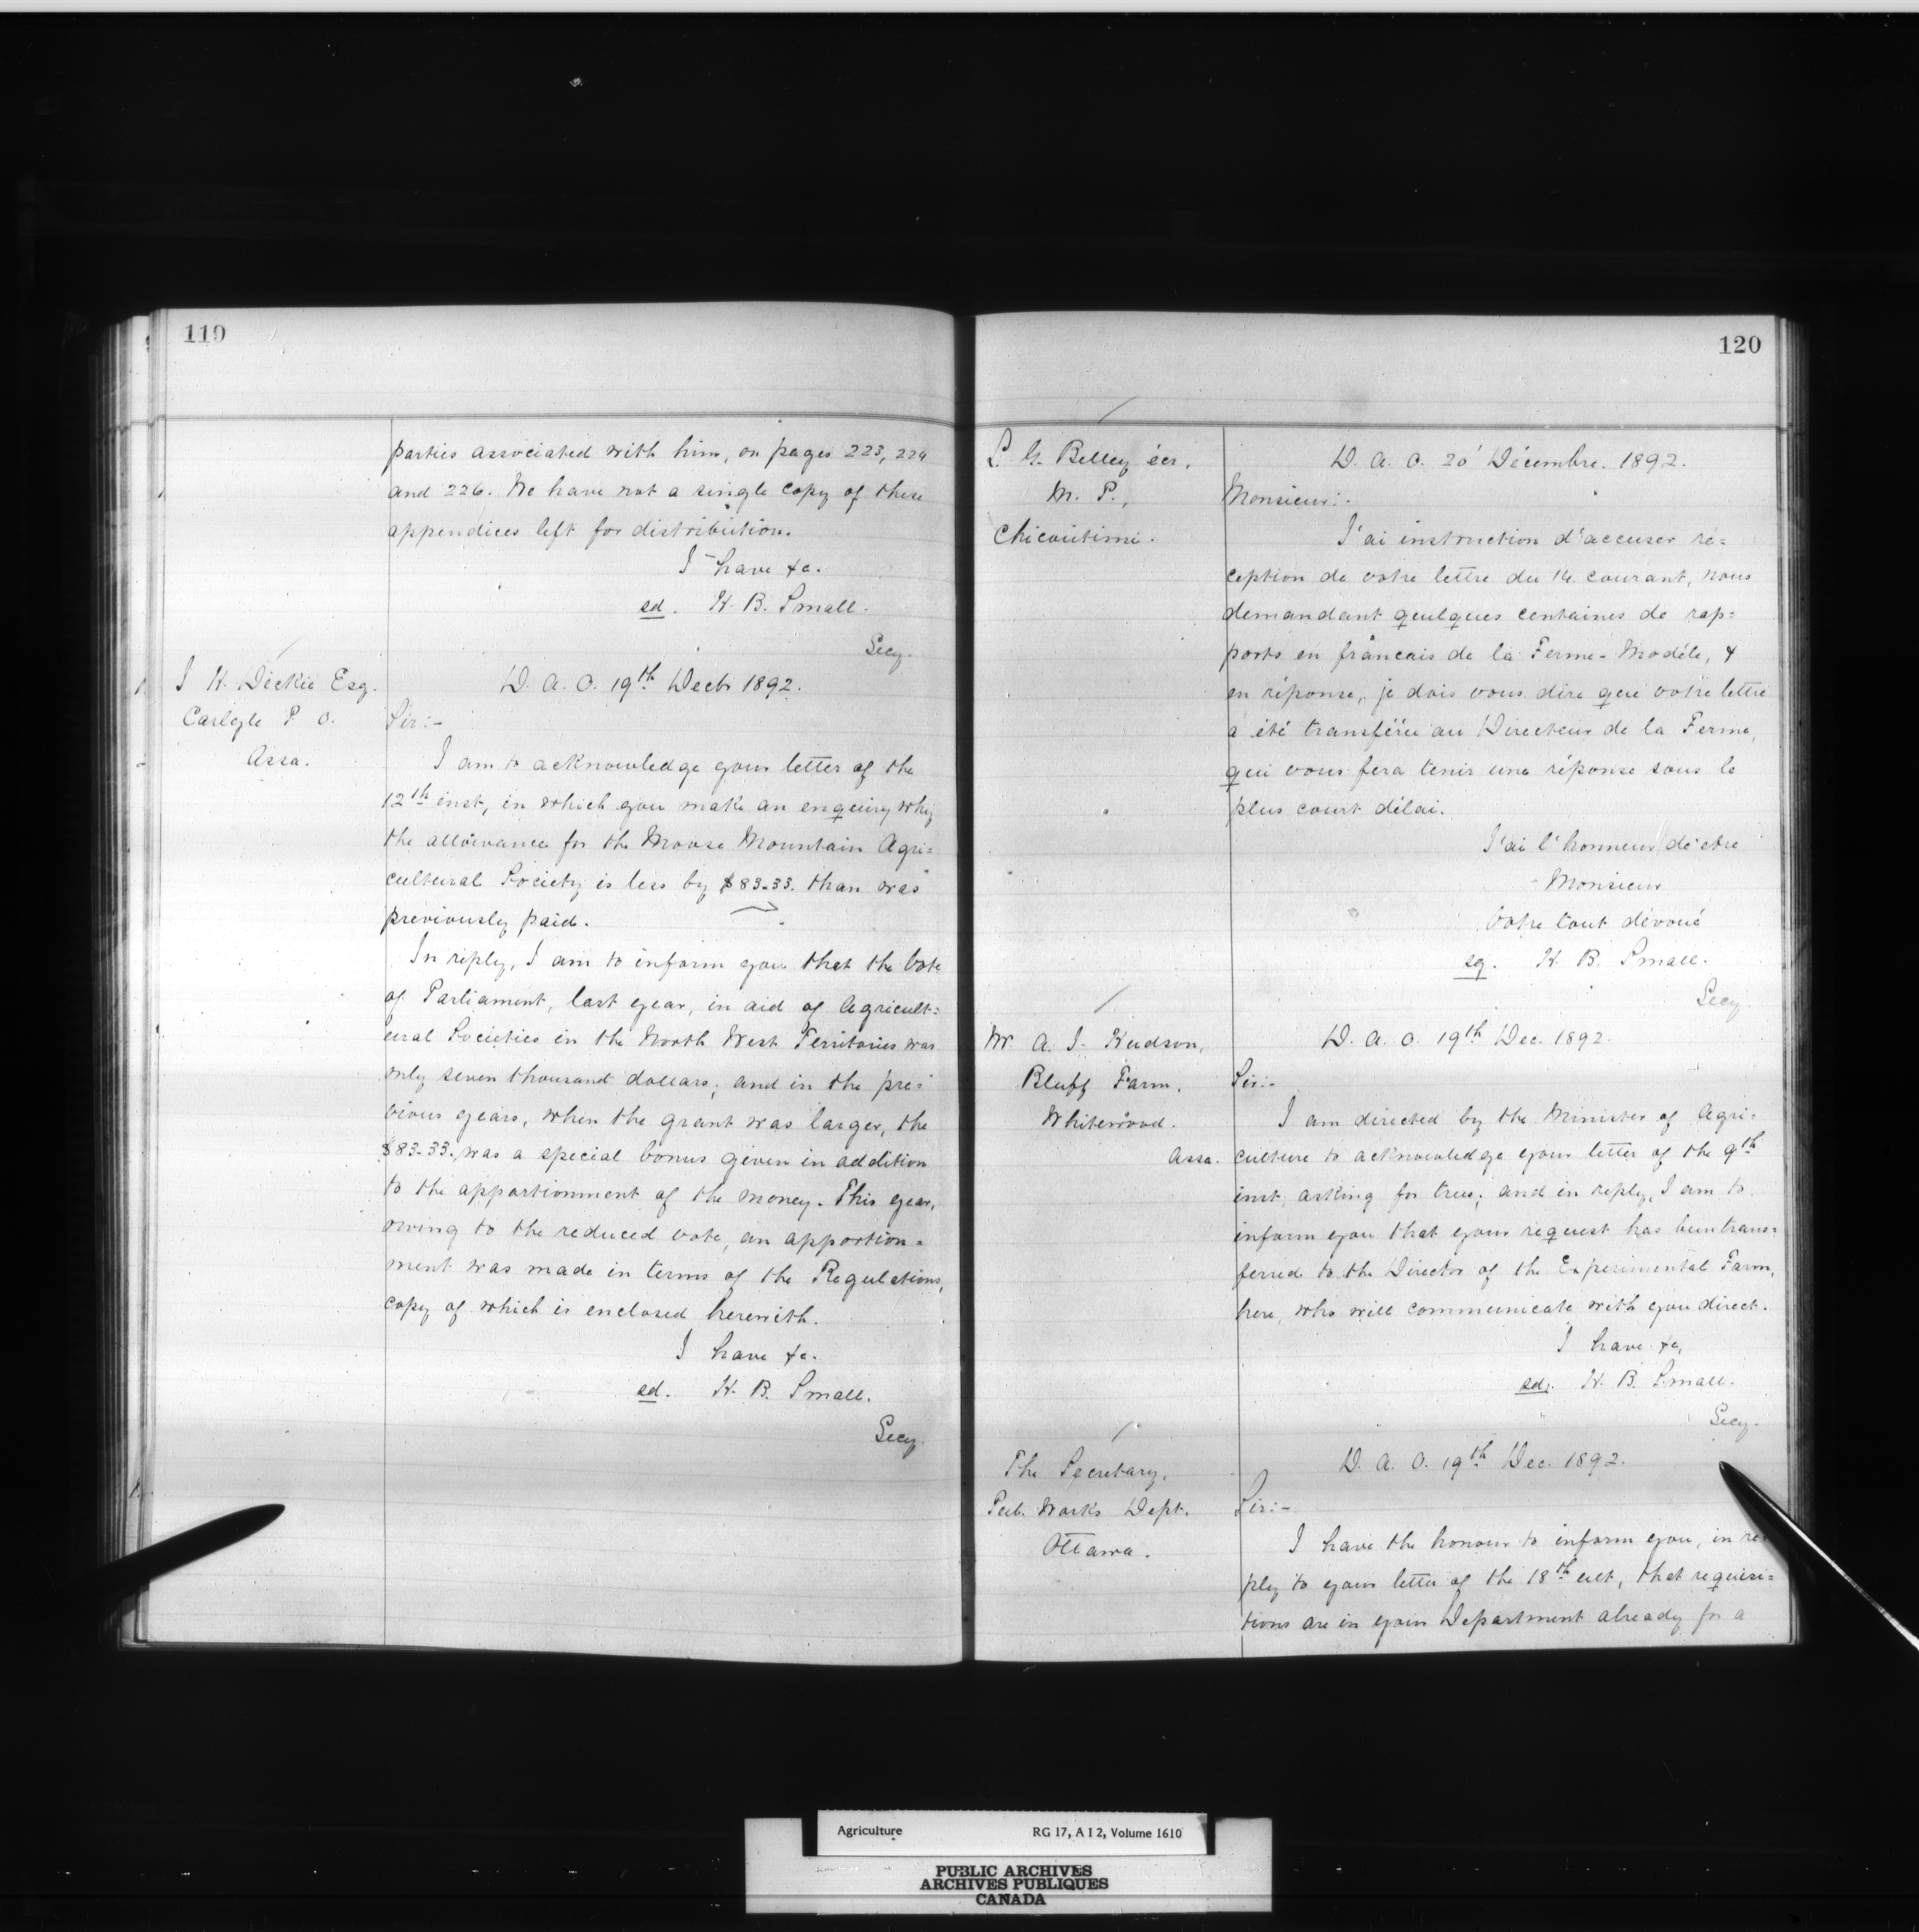 119
parties associated with him, on pages 223, 224
and 226. We have not a single copy of these
appendices left for distribution.
I have &c.
sd. H. B. Small.
Secy.
J H. Dickie Esq.
Carlyle P. O.
Assa.
D. A. O. 19th Decbr 1892.
Sir:-
I am to acknowledge your letter of the
12th inst, in which you make an enquiry why
the allowance for the Moose Mountain Agri=
cultural Society is less by $83.33. than was
previously paid.
In reply, I am to inform you that the Vote
of Parliament, last year, in aid of Agricult=
ural Societies in the North West Territories was
only seven thousand dollars; and in the pre=
vious years, when the grant was larger, the
$83.33. was a special bonus given in addition
to the apportionment of the money. This year,
owing to the reduced vote, an apportion=
ment was made in terms of the Regulations,
copy of which is enclosed herewith.
I have &c.
sd. H. B. Small.
Secy.
120
L. G. Belley écr.
M. P.,
Chicoutimi.
D. A. O. 20 Décembre. 1892.
Monsieur:.
J'ai instruction d'accuser ré=
ception de votre lettre du 14. courant, nous
demandant qeulques centaines de rap=
ports en francais de la Ferme-Modèle, &
en réponse, je dois vous dire que votre lettre
a été transférée au Directeur de la Ferme,
qui vous fera tenir une réponse sous le
plus court délai.
J'ai l'honneur de'etre
Monsieur
Votre tout dévoué
sg. H. B. Small.
Secy.
Mr A. J. Hudson,
Bluff Farm.
Whitewood.
Assa.
D. A. O. 19th Dec. 1892.
Sir:-
I am directed by the Minister of Agri=
culture to acknowledge your letter of the 9th
inst. asking for trees; and in reply, I am to
inform you that your request has been trans=
ferred to the Director of the Experimental Farm,
here, who will communicate with you direct.
I have &c,
sd. H. B. Small.
Secy.
The Secretary,
Pub. Works Dept.
Ottawa.
D. A. O. 19th Dec. 1892.
Sir:-
I have the honour to inform you, in re
ply to your letter of the 18th ult, that requisi=
tions are in your Department already for a
Agriculture RG 17, A I 2, Volume 1610
PUBLIC ARCHIVES
ARCHIVES PUBLIQUES
CANADA